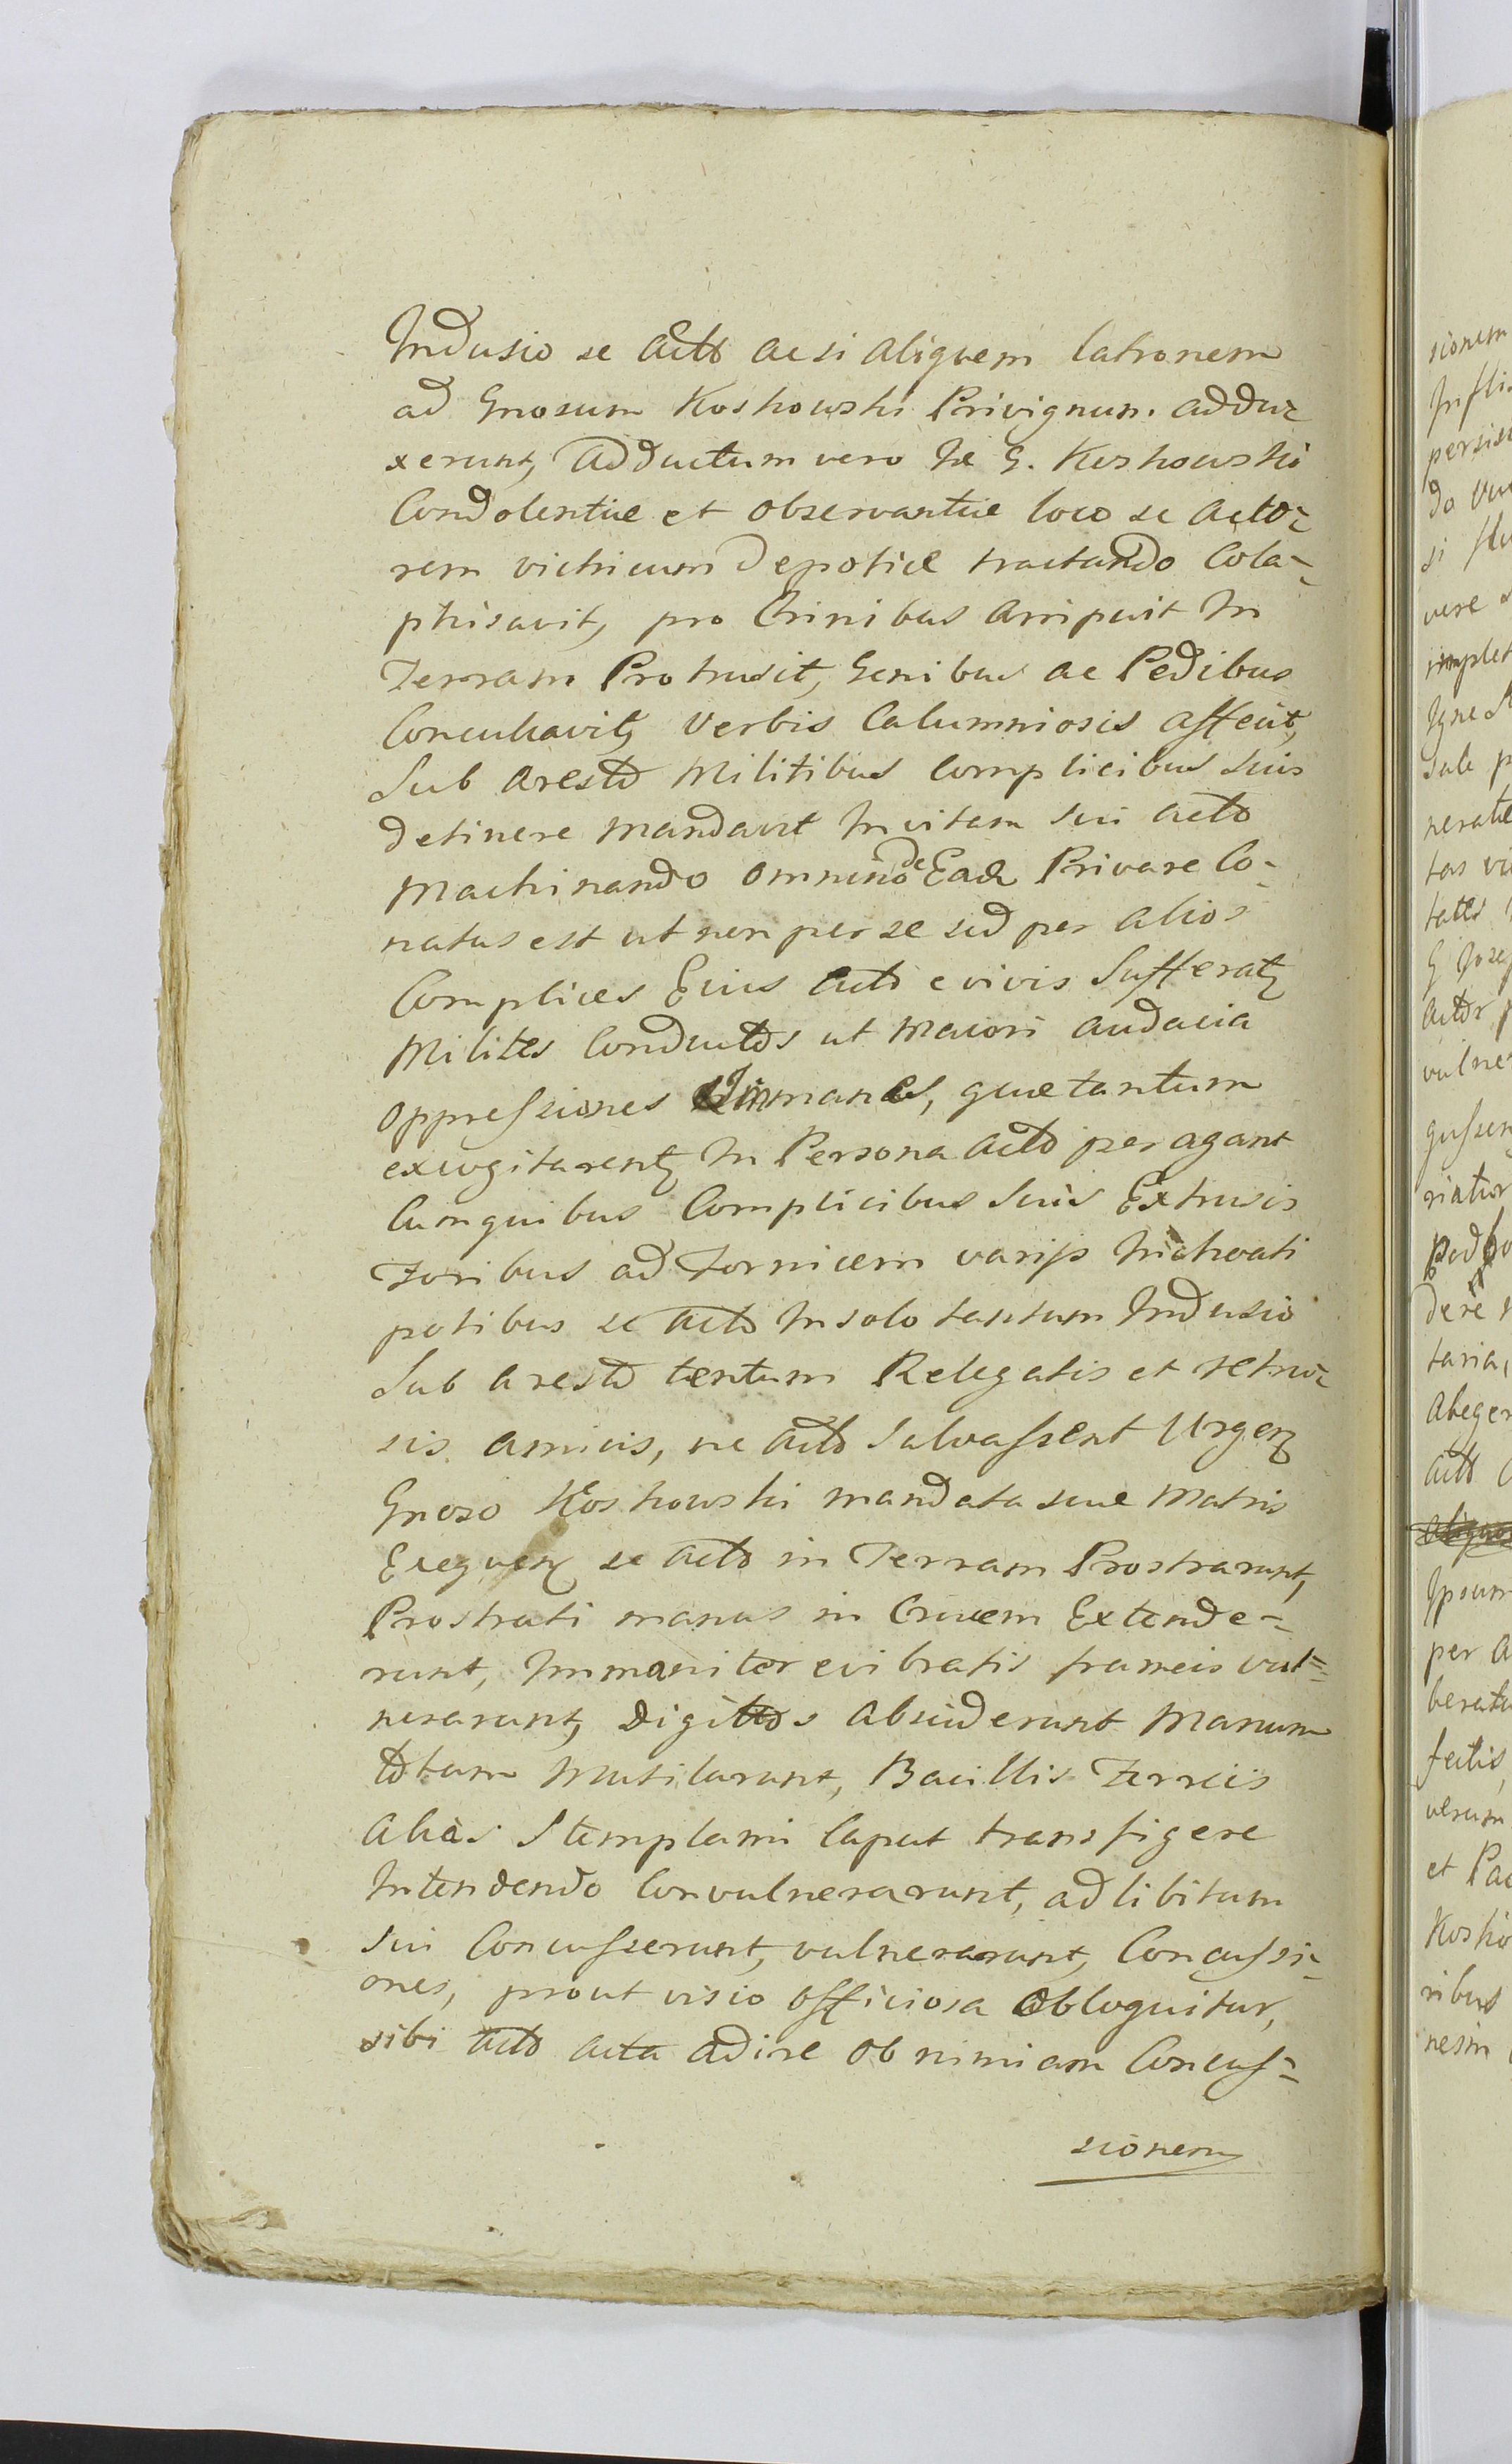 Indusio se Acto ac si aliquem latronem
ad Gnosum Koskowski Privignum. addu-
xerunt, adductum vero Je G. Koskowski
Condolentiæ et observantiæ loco se acto-
rem vitricum Depotice tractando Cola-
phisavit, pro Crinibus arripuit In
Terram Protrusit, Genibus ac Pedibus
Conculcavit, verbis Calumniosis affecit,
Sub aresto Militibus Complicibus suis
detinere mandavit In vitam sui acto
Machinando omnino de Eadem Privare Co-
natus est ut non per se sed per alios
Complices Eius acto e vivis Sufferatz
Milites Conductos ut maiori audacia
oppressiones Immanes, quæ tantum
excogitarentz In Persona acto peragant
Cum quibus Complicibus suis Extrusis
Foribus ad Fornicem varijs Inebreati
potibus se acto In solo tantum Indusio
Sub aresto tentum Relegatis et retru-
sis amicis, ne acto Salvassent Urgen
Gnoso Koskowski mandata suæ Matris
Exequen se acto in Terram Prostrarunt,
Prostrati manus in Crucem Extende-
runt, Immaniter evibratis frameis vul-
nerarunt, Digittos absciderunt Manum
totam Mutilarunt, Bacillis Ferreis
alias Stemplami Caput transfigere
Intendendo Convulnerarunt, ad libitum
sui Concusserunt, vulnerarunt, Concussi-
ones, prout visio officiosa obloquitur,
sibi acto acta adire ob nimiam Concus-
sionem
sionem
Infli
persis
do
si
vere
implet
Igne
sub p
nerate
tas vi
tates
G Jose
actor p
vulner
riator
dere
taria,
abeger
acto
Ipsum
per a
berat
fectis,
verum
et Pa
Kosko
ribus
nesm